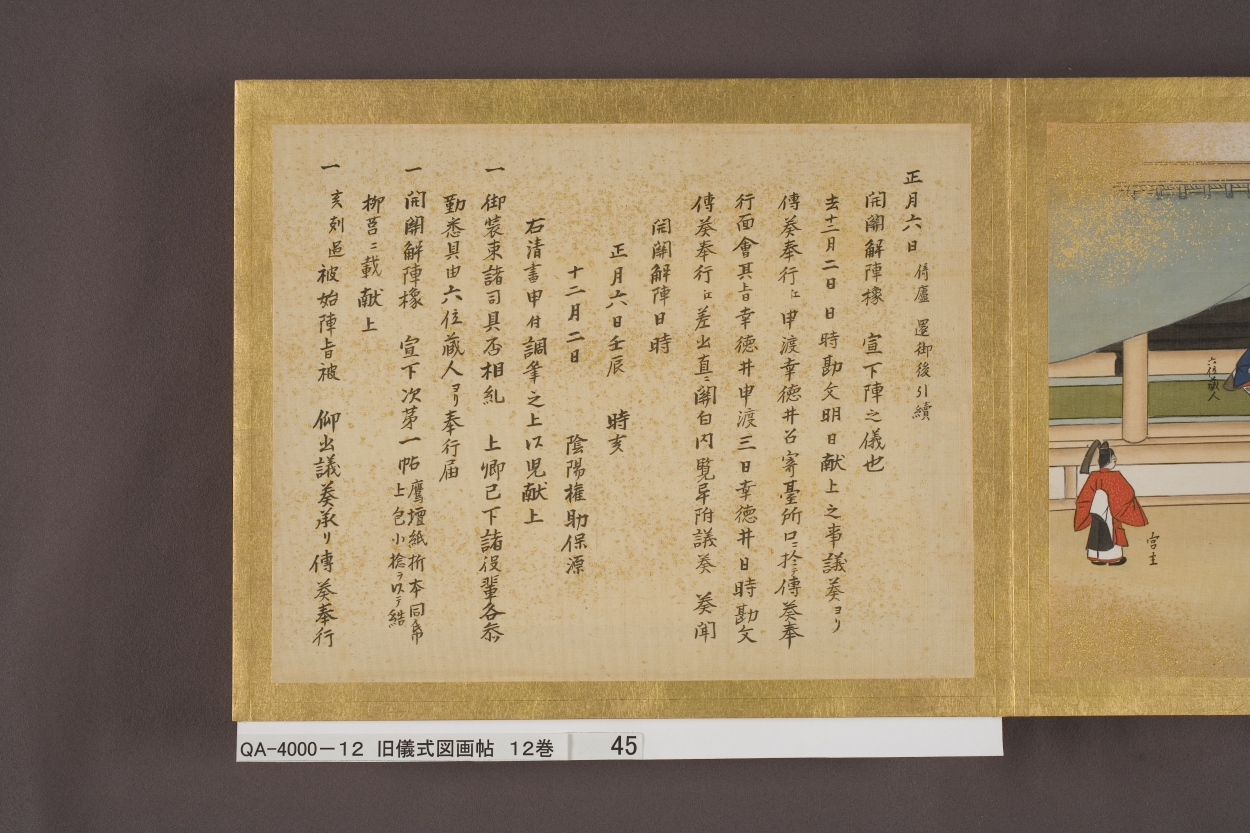 正月六日 倚廬 還御後引續
開關解陣條 宣下陣之儀也
去十二月二日 日時勘文明日献上之事議奏ヨリ
傳奏奉行江申渡幸徳井召寄臺所口ニ於テ傳奏奉
行面會其旨幸徳井申渡三日幸徳井日時勘文
傳奏奉行江差出直ニ關白内覧早附議奏 奏聞
開關解陣日時
正月六日壬辰 時亥
十二月二日 陰陽権助保源
右清書申付調筆之上以児献上
一 御装束諸司具否相糺 上卿已下諸役輩各参
勤悉具由六位蔵人ヨリ奉行届
一 開關解陣條 宣下次第一帖 鷹壇紙折本同帋
上包小捻ヲ以テ結
柳筥ニ載献上
一 亥刻過被始陣旨被 仰出議奏承リ傳奏奉行
六位蔵人
宮主
QA-4000-12 旧儀式図画帖 12巻 45